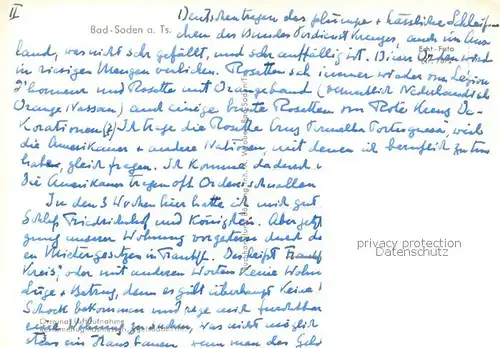 II
Deutschen tragen das plumpe + hässliche Schleif-
Bad-Soden a. Ts.
chen des Bundesverdienst Kreuzes, auch im Aus-
land, was nicht sehr gefällt, und sehr auffällig ist. Dieser Orden wird
Echt-Foto
in riesigen Mengen verliehen. Rosetten sah immer wieder von Legion
d'honneur und Rosette mit Orangeband (vermutlich Niederländisch
Orange Nassau) und einige bunte Rosetten von Rote Kreuz De-
korationen(?) Ich trage die Rosette Cruz Vermelha Portuguesa, weil
die Amerikaner + andere Nationen, mit denen ich beruflich zu tun
habe, gleich fragen. Ich komme dadurch +
Die Amerikaner tragen oft Ordensschnallen
In den 3 Wochen hier hatte ich mich gut
Schloß Friedrichshof und Königstein. Aber jetzt
gung unserer Wohnung vorgestern durch d
en Mietergesetzes in Frankf. Das heißt Frankf
Kreis, oder mit anderen Worten keine Wohn
Lüge + Betrug, denn es gibt überhaupt keine
Schock bekommen und rege mich furchtbar
eine Wohnung zu suchen, was nicht möglich
etwas ein Haus bauen, wenn man das Geld
privacy protection
Datenschutz